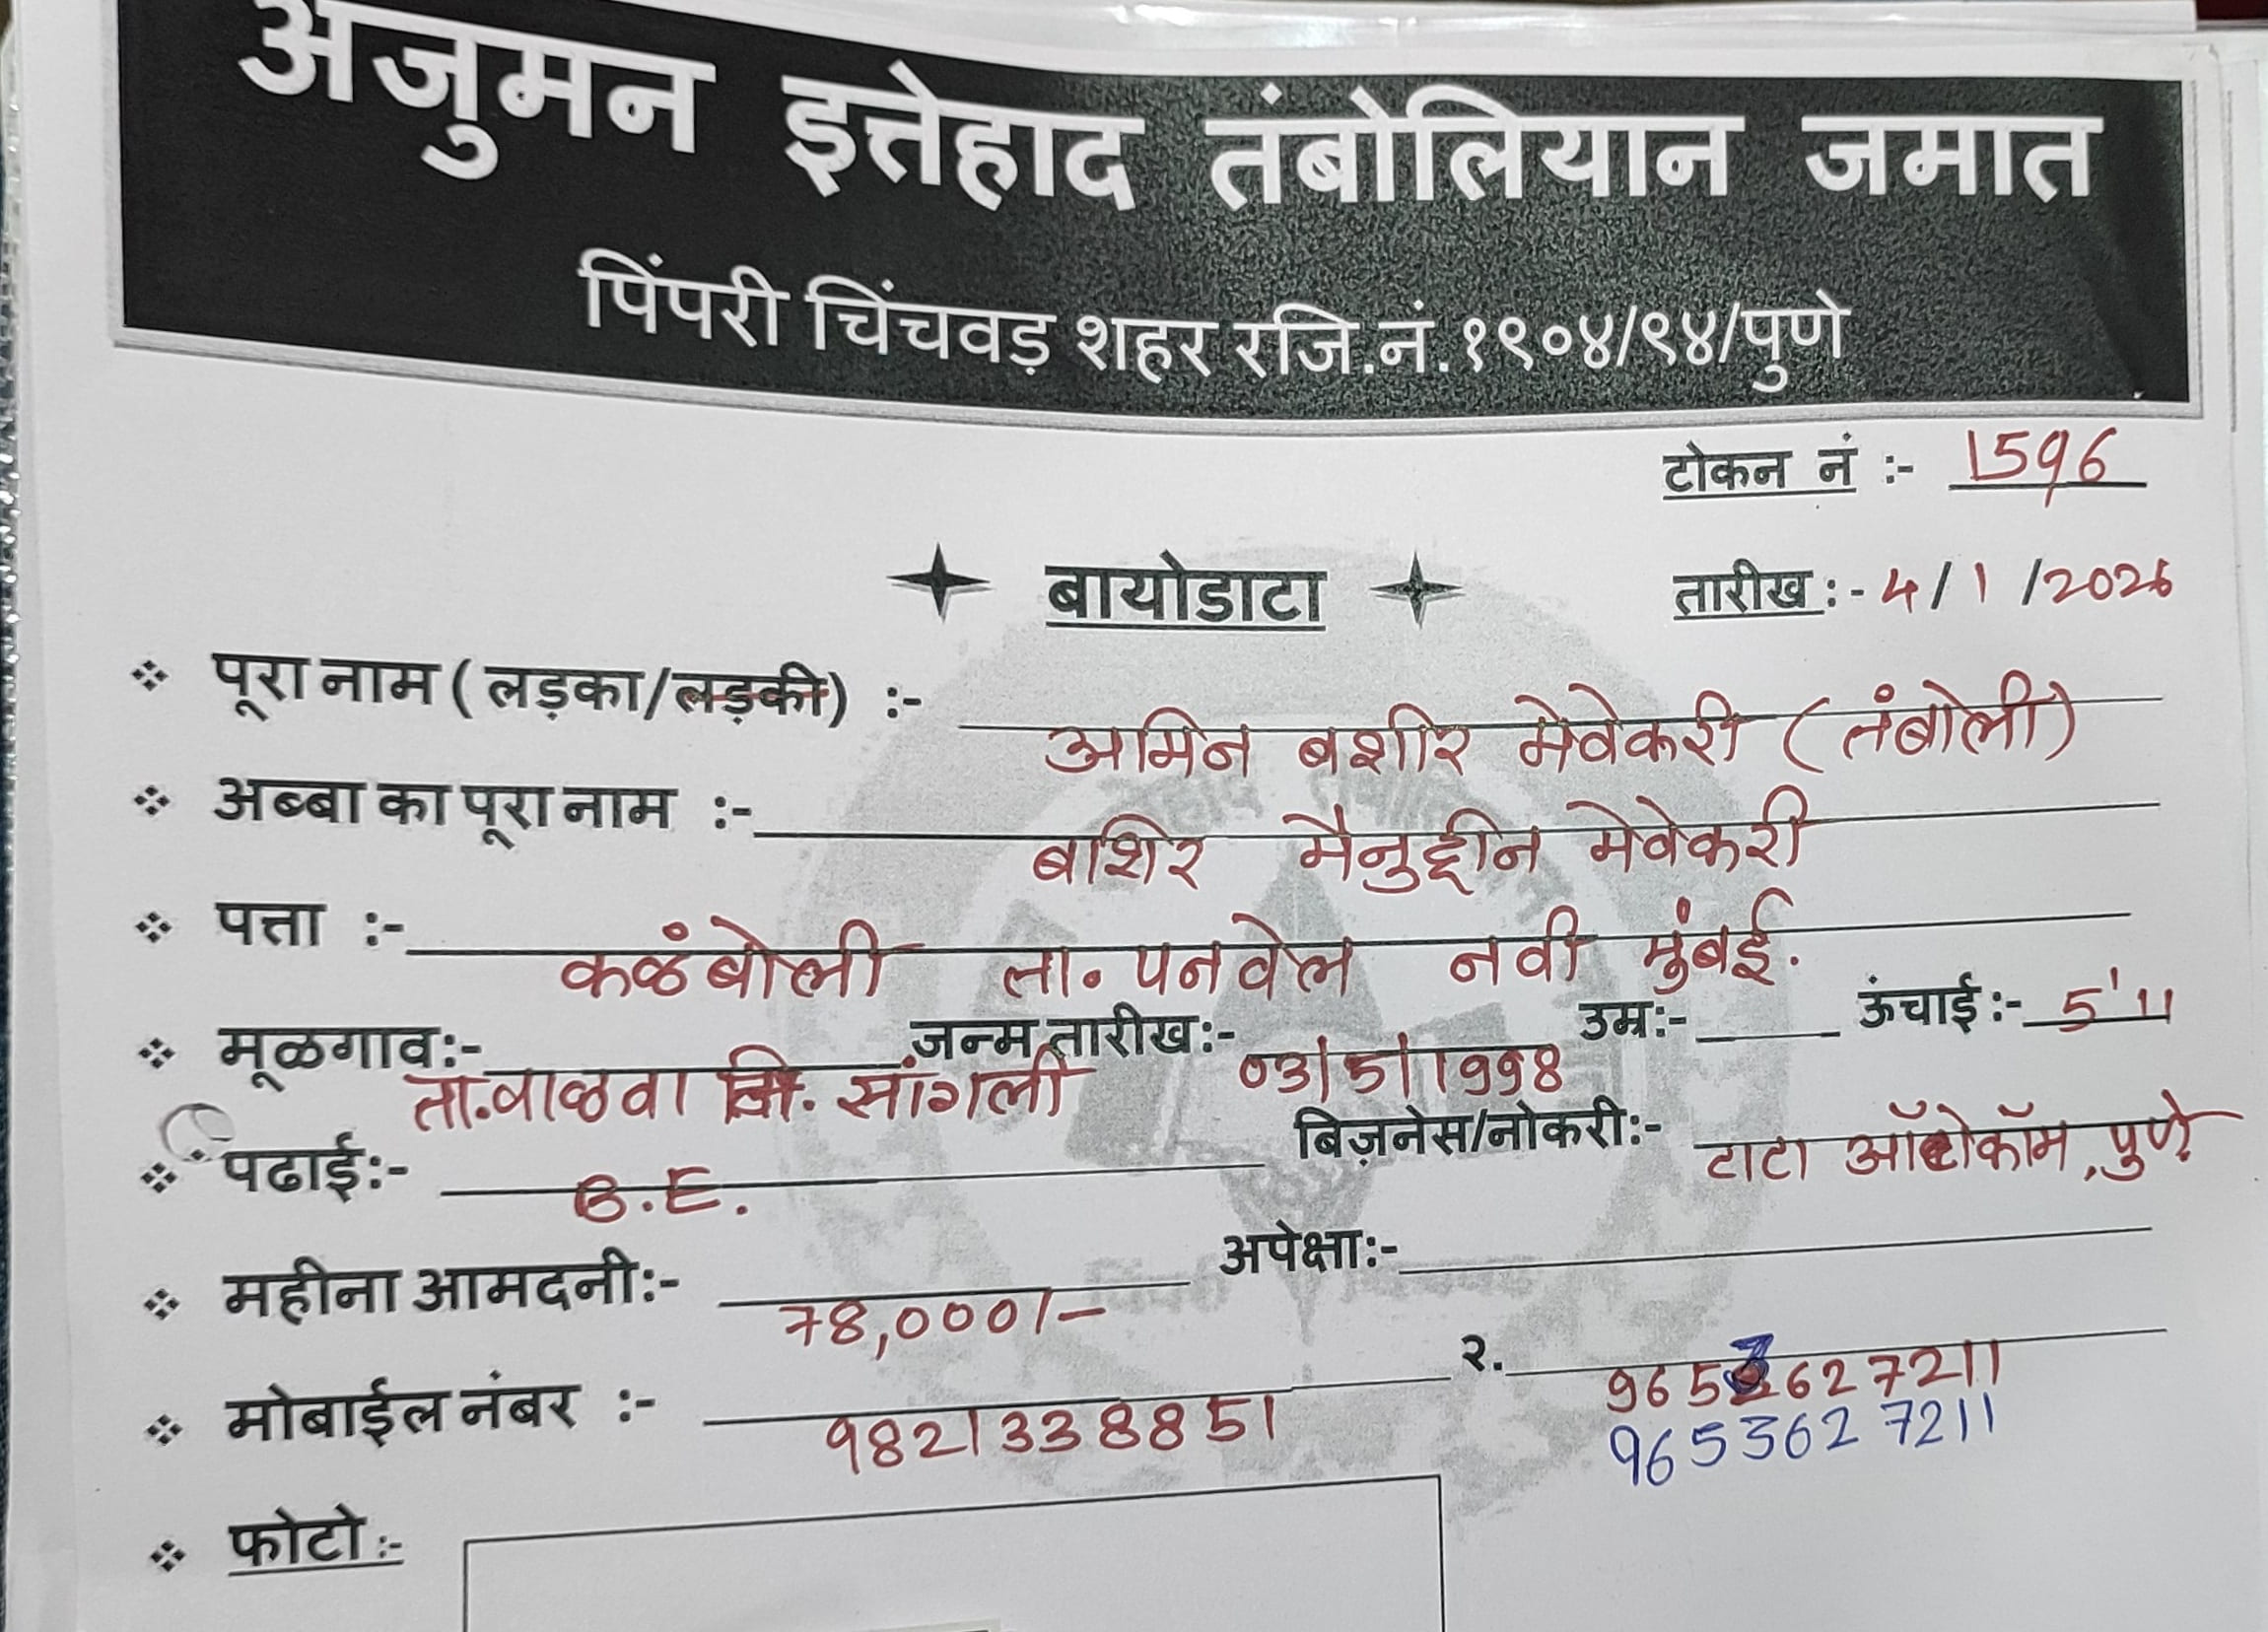 अजुमन इत्तेहाद तंबोलियान जमात
पिंपरी चिंचवड़ शहर रजि.नं.१९०४/९४/पुणे
टोकन नं :- 1596
बायोडाटा
तारीख :- 4/1/2026
पूरा नाम ( लड़का/लड़की) :- अमिन बशीर मेवेकरी (तंबोली)
अब्बा का पूरा नाम :- बाशिर मैनुद्दीन मेवेकरी
पत्ता :- कळंबोली ता. पनवेल नवी मुंबई.
मूळगाव:- ता.वाळवा जि. सांगली जन्म तारीख:- 03/5/1998 उम्र:- ऊंचाई:- 5'11
पढाई:- B.E. बिज़नेस/नोकरी:- टाटा ऑटोकॉम, पुणे
महीना आमदनी:- 78,000/- अपेक्षा:-
मोबाईल नंबर :- 9821338851 २. 9653627211
9653627211
फोटो :-